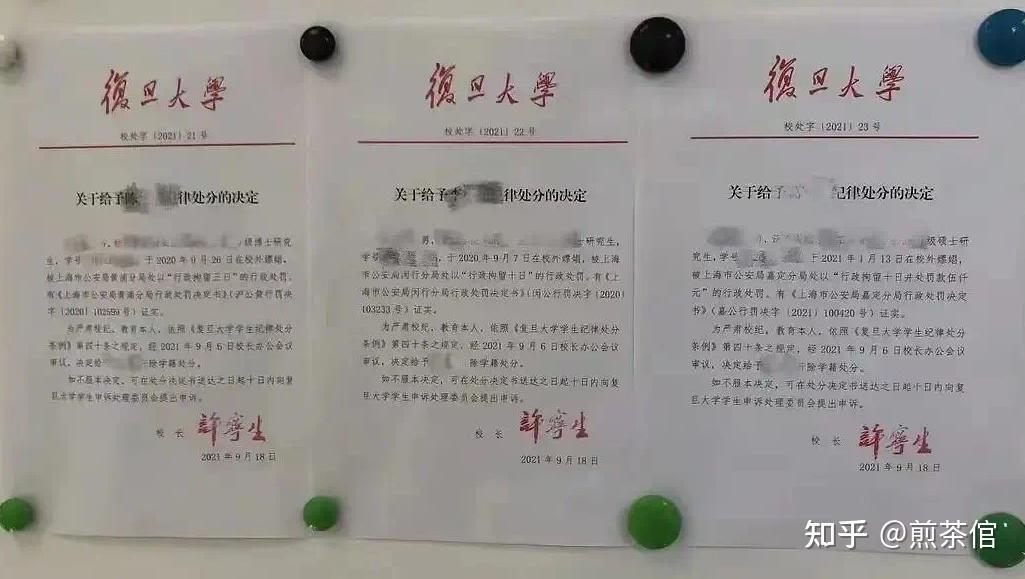 復旦大學
校处字〔2021〕21 号
关于给予陈 纪律处分的决定
级博士研究
生，学号 于 2020 年 9 月 26 日在校外嫖娼，
被上海市公安局黄浦分局处以“行政拘留三日”的行政处罚。
有《上海市公安局黄浦分局行政处罚决定书》（沪公黄行罚决
字〔2020〕102599 号）证实。
为严肃校纪，教育本人，依照《复旦大学学生纪律处分
条例》第四十条之规定，经 2021 年 9 月 6 日校长办公会议
审议，决定给 除学籍处分。
如不服本决定，可在处分决定书送达之日起十日内向复
旦大学学生申诉处理委员会提出申诉。
校 长 許寧生
2021 年 9 月 18 日
復旦大學
校处字〔2021〕22 号
关于给予李 纪律处分的决定
男， 士研究生，
学号 ，于 2020 年 9 月 7 日在校外嫖娼，被上
海市公安局闵行分局处以“行政拘留十日”的行政处罚。有《上
海市公安局闵行分局行政处罚决定书》（闵公行罚决字〔2020〕
103233 号）证实。
为严肃校纪，教育本人，依照《复旦大学学生纪律处分
条例》第四十条之规定，经 2021 年 9 月 6 日校长办公会议
审议，决定给予 除学籍处分。
如不服本决定，可在处分决定书送达之日起十日内向复
旦大学学生申诉处理委员会提出申诉。
校 长 許寧生
2021 年 9 月 18 日
復旦大學
校处字〔2021〕23 号
关于给予 纪律处分的决定
级硕士研
究生，学号 于 2021 年 1 月 13 日在校外嫖娼，
被上海市公安局嘉定分局处以“行政拘留十日并处罚款伍仟
元”的行政处罚。有《上海市公安局嘉定分局行政处罚决定
书》（嘉公行罚决字〔2021〕100420 号）证实。
为严肃校纪，教育本人，依照《复旦大学学生纪律处分
条例》第四十条之规定，经 2021 年 9 月 6 日校长办公会议
审议，决定给予 除学籍处分。
如不服本决定，可在处分决定书送达之日起十日内向复
旦大学学生申诉处理委员会提出申诉。
校 长 許寧生
2021 年 9 月 18 日
知乎 @煎茶倌